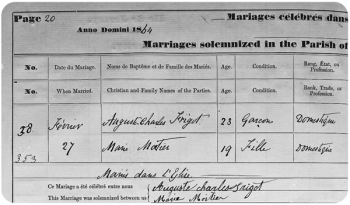 Page 20 Mariages célébrés dans
Anno Domini 1864
Marriages solemnized in the Parish of
No. Date du Mariage. Noms de Baptême et de Famille des Mariés. Age. Condition. Rang, État, ou Profession.
No. When Married. Christian and Family Names of the Parties. Age. Condition. Rank, Trade, or Profession.
38 Février Auguste Charles Frigot 23 Garçon Domestique
353 27 Marie Mottier 19 Fille Domestique
Mariés dans l'Eglise
Ce Mariage a été célébré entre nous Auguste charles
This Marriage was solemnized between us Marie